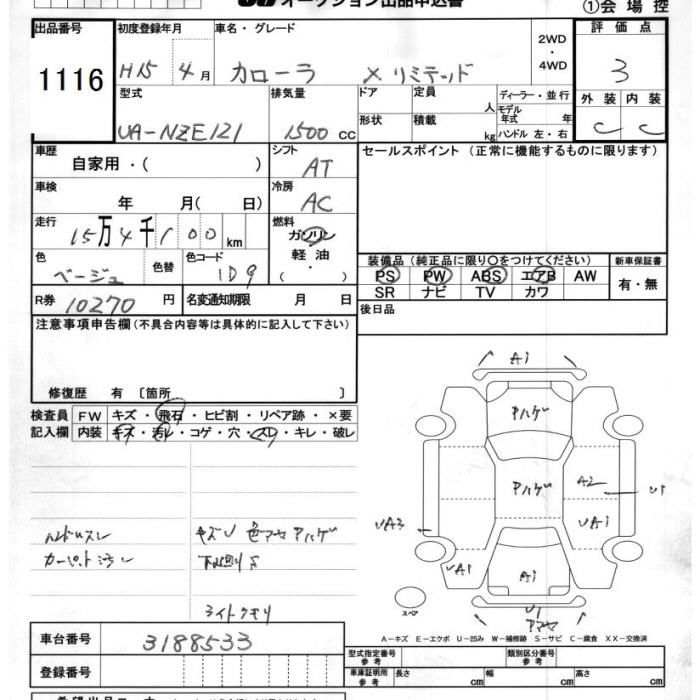 オークション出品申込書
①会場控
出品番号
1116
初度登録年月
H15 4月
車名・グレード
カローラ X リミテッド
2WD・4WD
評価点
3
外装 内装
C C
型式
UA-NZE121
排気量
1500 cc
ドア
形状
定員 人
積載 kg
ディーラー・並行
モデル年式 年
ハンドル 左・右
車歴
自家用・( )
シフト
AT
セールスポイント (正常に機能するものに限ります)
車検
年 月( 日)
冷房
AC
走行
15万4千100km
燃料
ガソリン
軽油・
( )
色
ベージュ
色替
色コード
1D9
装備品 (純正品に限り〇をつけてください)
PS PW ABS エアB AW
SR ナビ TV カワ
新車保証書
有・無
R券 10270円
名変通知期限 月 日
後日品
注意事項申告欄 (不具合内容等は具体的に記入して下さい)
修復歴 有 〔箇所 〕
検査員記入欄
FW キズ・飛石・ヒビ割・リペア跡・×要
内装 キズ・汚レ・コゲ・穴・スレ・キレ・破レ
ハンドルスレ
カーペット汚レ
キズU 色アセ Aハゲ
下廻りS
ライトクモリ
A1
Aハゲ
Aハゲ
A2
U1
UA3
UA1
UA1
A1
U1
アセ
スペア
A-キズ E-エクボ U-凹み W-補修跡 S-サビ C-腐食 XX-交換済
車台番号
3188533
登録番号
型式指定番号 参考
類別区分番号 参考
車庫証明用 参考
長さ cm 幅 cm 高さ cm